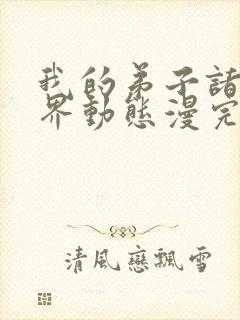 我的弟子諸
界動態漫完
清風戀飄雪